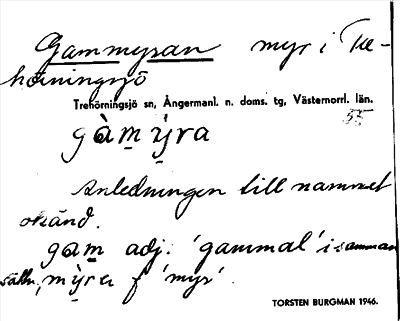 Gammyran myr i Tre-
hörningsjö
Trehörningsjö sn, Ångermanl. n. doms. tg, Västernorrl. län.
55
gàm̱ýra
Anledningen till namnet
okänd.
gam̱ adj. 'gammal' i samman
sättn., m̱ỳra f 'myr'.
TORSTEN BURGMAN 1946.